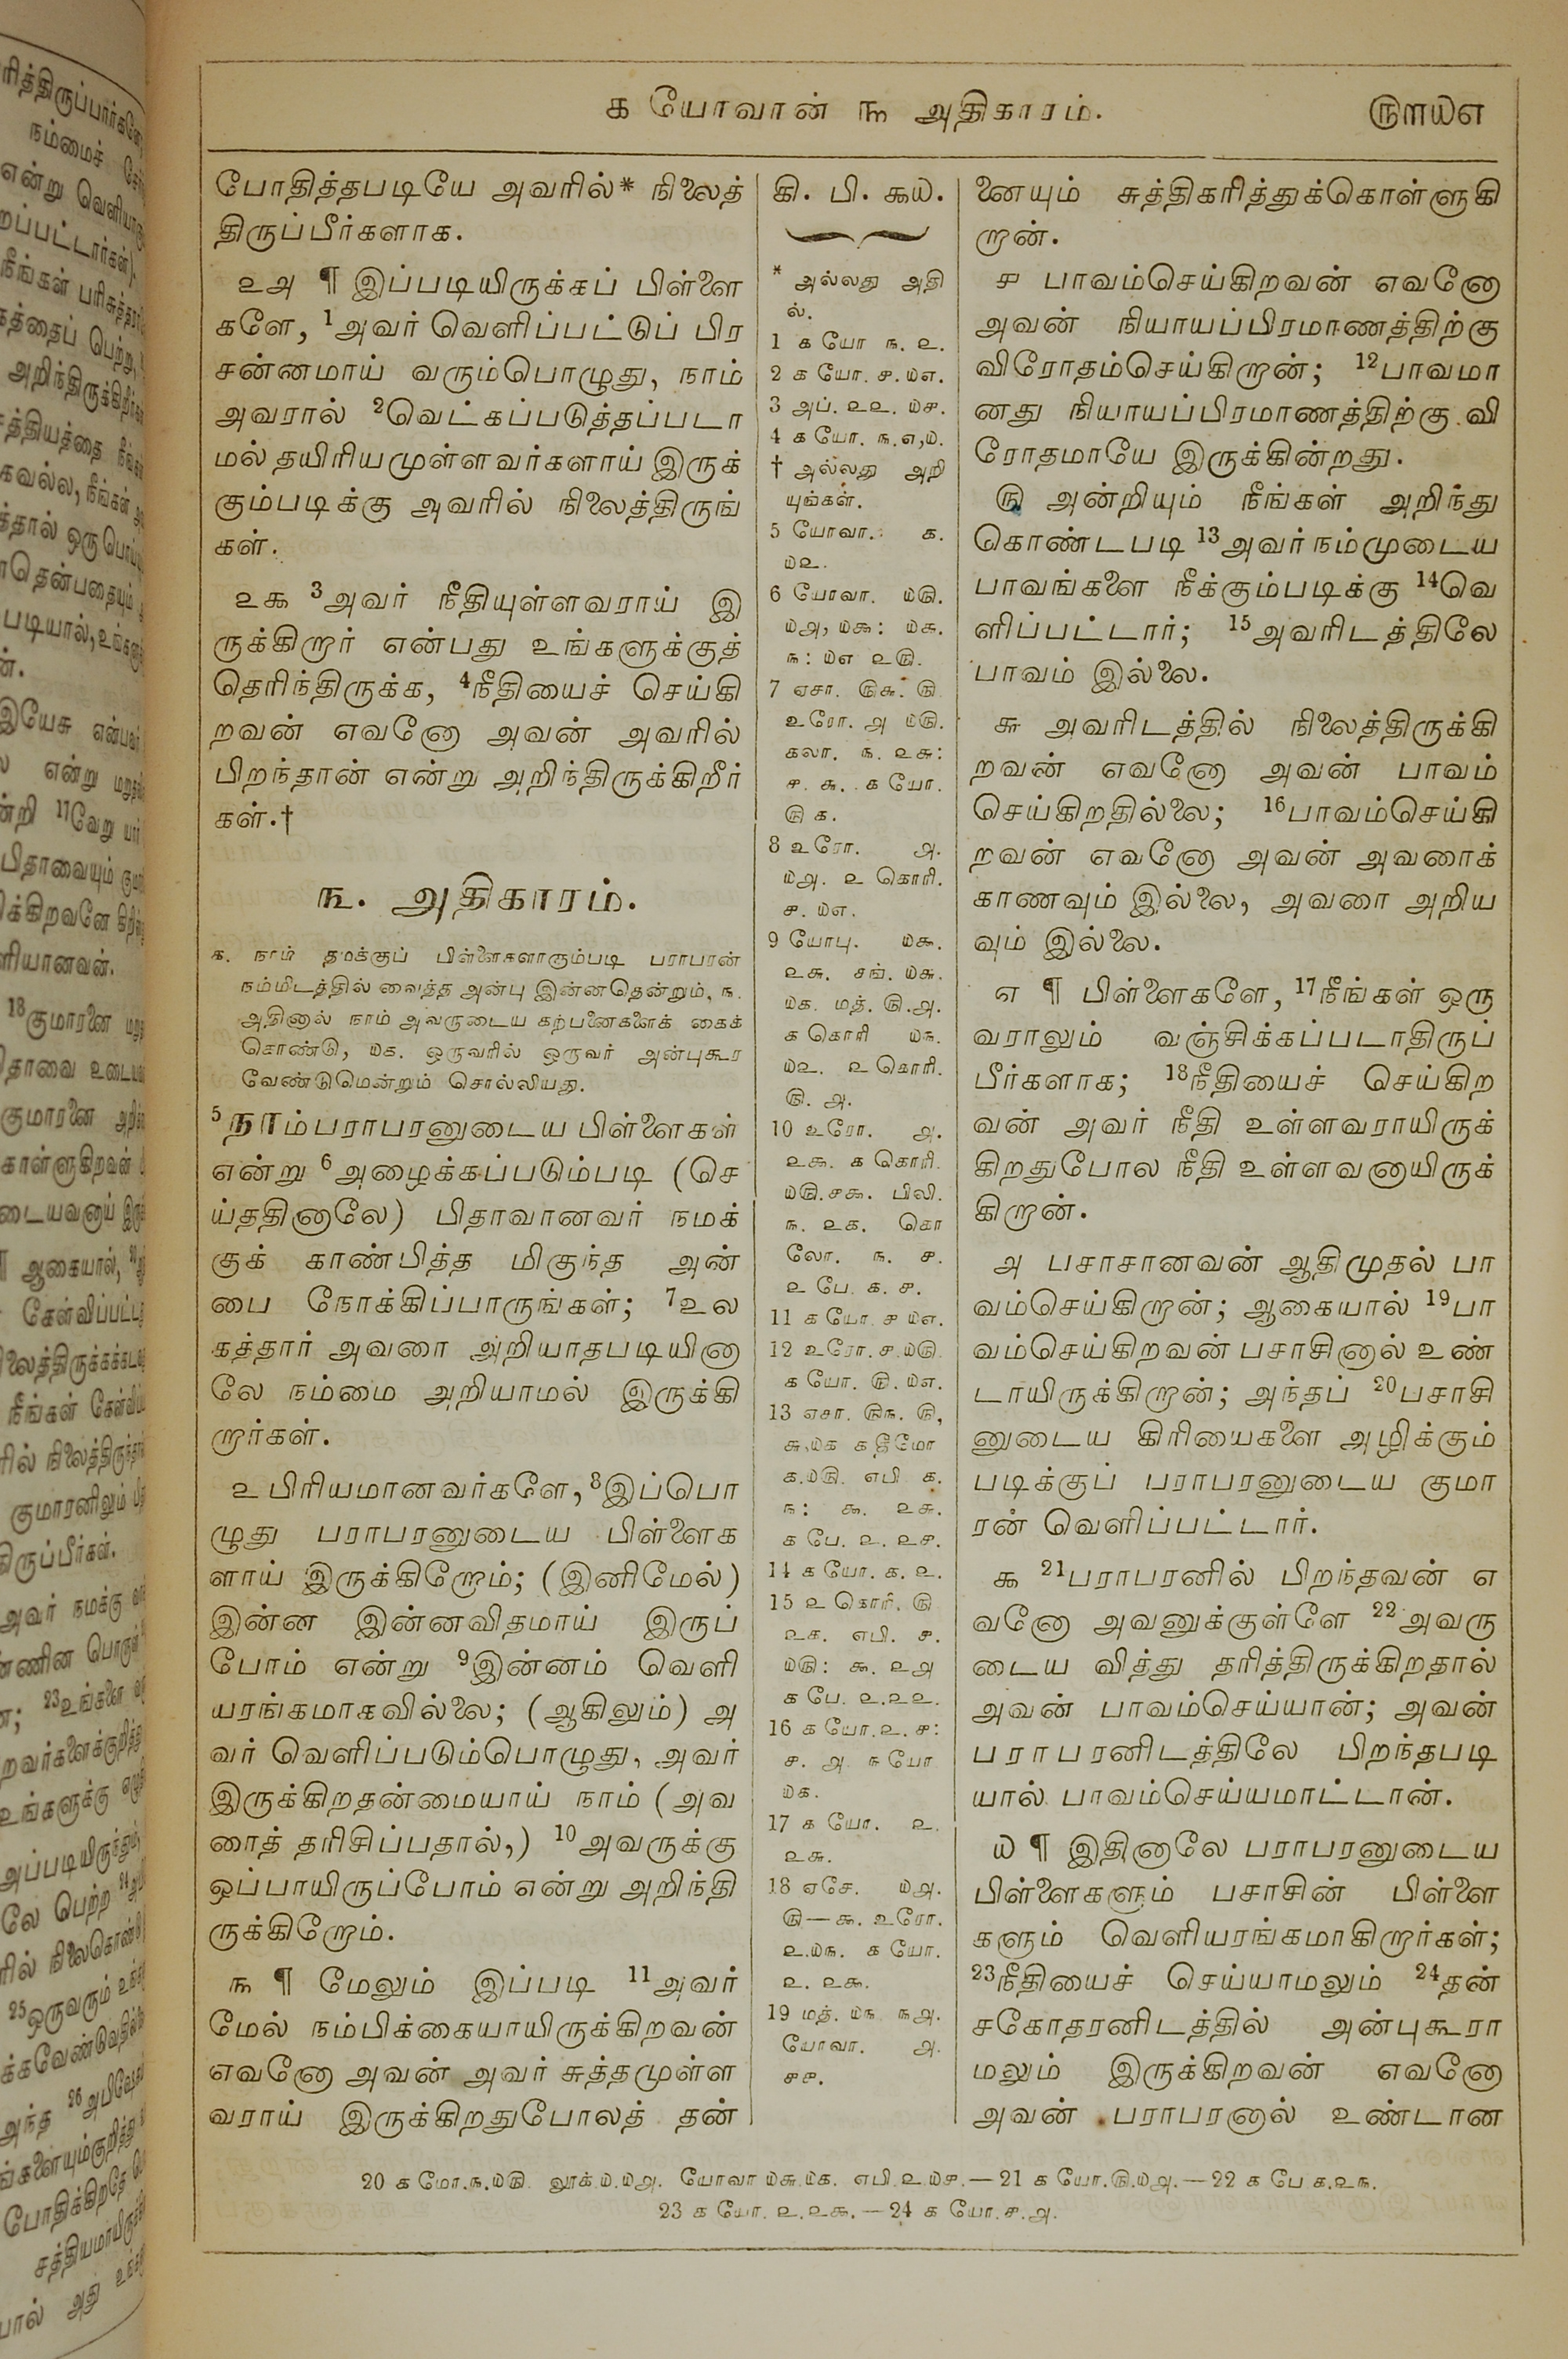 ௧ யோவான் ௩ அதிகாரம்.
௫௱௰௭
போதித்தபடியே அவரில்* நிலைத்
திருப்பீர்களாக.
௨௮ ¶ இப்படியிருக்கப் பிள்ளை
களே, 1அவர் வெளிப்பட்டுப் பிர
சன்னமாய் வரும்பொழுது, நாம்
அவரால் 2வெட்கப்படுத்தப்படா
மல் தயிரியமுள்ளவர்களாய் இருக்
கும்படிக்கு அவரில் நிலைத்திருங்
கள்.
௨௯ 3அவர் நீதியுள்ளவராய் இ
ருக்கிறார் என்பது உங்களுக்குத்
தெரிந்திருக்க, 4நீதியைச் செய்கி
றவன் எவனோ அவன் அவரில்
பிறந்தான் என்று அறிந்திருக்கிறீர்
கள்.†
௩. அதிகாரம்.
௧. நாம் தமக்குப் பிள்ளைகளாகும்படி பராபரன்
நம்மிடத்தில் வைத்த அன்பு இன்னதென்றும், ௩.
அதினால் நாம் அவருடைய கற்பனைகளைக் கைக்
கொண்டு, ௰௧. ஒருவரில் ஒருவர் அன்புகூர
வேண்டுமென்றும் சொல்லியது.
5நாம்பராபரனுடைய பிள்ளைகள்
என்று 6அழைக்கப்படும்படி (செ
ய்ததினாலே) பிதாவானவர் நமக்
குக் காண்பித்த மிகுந்த அன்
பை நோக்கிப்பாருங்கள்; 7உல
கத்தார் அவரை அறியாதபடியினா
லே நம்மை அறியாமல் இருக்கி
றார்கள்.
௨ பிரியமானவர்களே, 8இப்பொ
ழுது பராபரனுடைய பிள்ளைக
ளாய் இருக்கிறோம்; (இனிமேல்)
இன்ன இன்னவிதமாய் இருப்
போம் என்று 9இன்னம் வெளி
யரங்கமாகவில்லை; (ஆகிலும்) அ
வர் வெளிப்படும்பொழுது, அவர்
இருக்கிறதன்மையாய் நாம் (அவ
ரைத் தரிசிப்பதால்,) 10அவருக்கு
ஒப்பாயிருப்போம் என்று அறிந்தி
ருக்கிறோம்.
௩ ¶ மேலும் இப்படி 11அவர்
மேல் நம்பிக்கையாயிருக்கிறவன்
எவனோ அவன் அவர் சுத்தமுள்ள
வராய் இருக்கிறதுபோலத் தன்
கி. பி. ௯௰.
* அல்லது அதி
ல்.
1 ௧ யோ ௩. ௨.
2 ௧ யோ. ௪. ௰௭.
3 அப். ௨௨. ௰௪.
4 ௧ யோ. ௩.௭,௰.
† அல்லது அறி
யுங்கள்.
5 யோவா. ௧.
௰௨.
6 யோவா. ௰௫.
௰௮, ௰௯: ௰௬.
௩: ௰௭ ௨௫.
7 ஏசா. ௫௬. ௫
உரோ. ௮ ௰௫.
கலா. ௩. ௨௬:
௪. ௬. ௧ யோ.
௫ ௧.
8 உரோ. ௮.
௰௮. ௨ கொரி.
௪. ௰௭.
9 யோபு. ௰௯.
௨௬. சங். ௰௬.
௰௧. மத். ௫.௮.
௧ கொரி ௰௩.
௰௨. ௨ கொரி.
௫. ௮.
10 உரோ. ௮.
௨௯. ௧ கொரி.
௰௫.௪௯. பிலி.
௩. ௨௧. கொ
லோ. ௩. ௪.
௨ பே. ௧. ௪.
11 ௧ யோ. ௪ ௰௭.
12 உரோ. ௪.௰௫
௧ யோ. ௫. ௰௭.
13 ஏசா. ௫௩. ௫,
௬,௰௧ ௧ தீமோ
௧.௰௫. எபி ௧.
௩: ௯. ௨௬.
௧ பே. ௨. ௨௪.
14 ௧ யோ. ௧. ௨.
15 ௨ கொரி. ௫
௨௧. எபி. ௪.
௰௫: ௯. ௨௮
௧ பே. ௨.௨௨.
16 ௧ யோ.௨. ௪:
௪. ௮ ௩ யோ
௰௧.
17 ௧ யோ. ௨.
௨௬.
18 ஏசே. ௰௮.
௫—௯. உரோ.
௨.௰௩. ௧ யோ.
௨. ௨௯.
19 மத். ௰௩ ௩௮.
யோவா. ௮.
௪௪.
னையும் சுத்திகரித்துக்கொள்ளுகி
றான்.
௪ பாவம்செய்கிறவன் எவனோ
அவன் நியாயப்பிரமாணத்திற்கு
விரோதம்செய்கிறான்; 12பாவமா
னது நியாயப்பிரமாணத்திற்கு வி
ரோதமாயே இருக்கின்றது.
௫ அன்றியும் நீங்கள் அறிந்து
கொண்டபடி 13அவர் நம்முடைய
பாவங்களை நீக்கும்படிக்கு 14வெ
ளிப்பட்டார்; 15அவரிடத்திலே
பாவம் இல்லை.
௬ அவரிடத்தில் நிலைத்திருக்கி
றவன் எவனோ அவன் பாவம்
செய்கிறதில்லை; 16பாவம்செய்கி
றவன் எவனோ அவன் அவரைக்
காணவும் இல்லை, அவரை அறிய
வும் இல்லை.
௭ ¶ பிள்ளைகளே, 17நீங்கள் ஒரு
வராலும் வஞ்சிக்கப்படாதிருப்
பீர்களாக; 18நீதியைச் செய்கிற
வன் அவர் நீதி உள்ளவராயிருக்
கிறதுபோல நீதி உள்ளவனாயிருக்
கிறான்.
௮ பசாசானவன் ஆதிமுதல் பா
வம்செய்கிறான்; ஆகையால் 19பா
வம்செய்கிறவன் பசாசினால் உண்
டாயிருக்கிறான்; அந்தப் 20பசாசி
னுடைய கிரியைகளை அழிக்கும்
படிக்குப் பராபரனுடைய குமா
ரன் வெளிப்பட்டார்.
௯ 21பராபரனில் பிறந்தவன் எ
வனோ அவனுக்குள்ளே 22அவரு
டைய வித்து தரித்திருக்கிறதால்
அவன் பாவம்செய்யான்; அவன்
பராபரனிடத்திலே பிறந்தபடி
யால் பாவம்செய்யமாட்டான்.
௰ ¶ இதினாலே பராபரனுடைய
பிள்ளைகளும் பசாசின் பிள்ளை
களும் வெளியரங்கமாகிறார்கள்;
23நீதியைச் செய்யாமலும் 24தன்
சகோதரனிடத்தில் அன்புகூரா
மலும் இருக்கிறவன் எவனோ
அவன் பராபரனால் உண்டான
20 ௧ மோ.௩.௰௫. லூக்.௰.௰௮. யோவா ௰௬.௰௧. எபி.௨.௰௪.—21 ௧ யோ.௫.௰௮.—22 ௧ பே ௧.௨௩.
23 ௧ யோ. ௨.௨௯.—24 ௧ யோ.௪.௮.